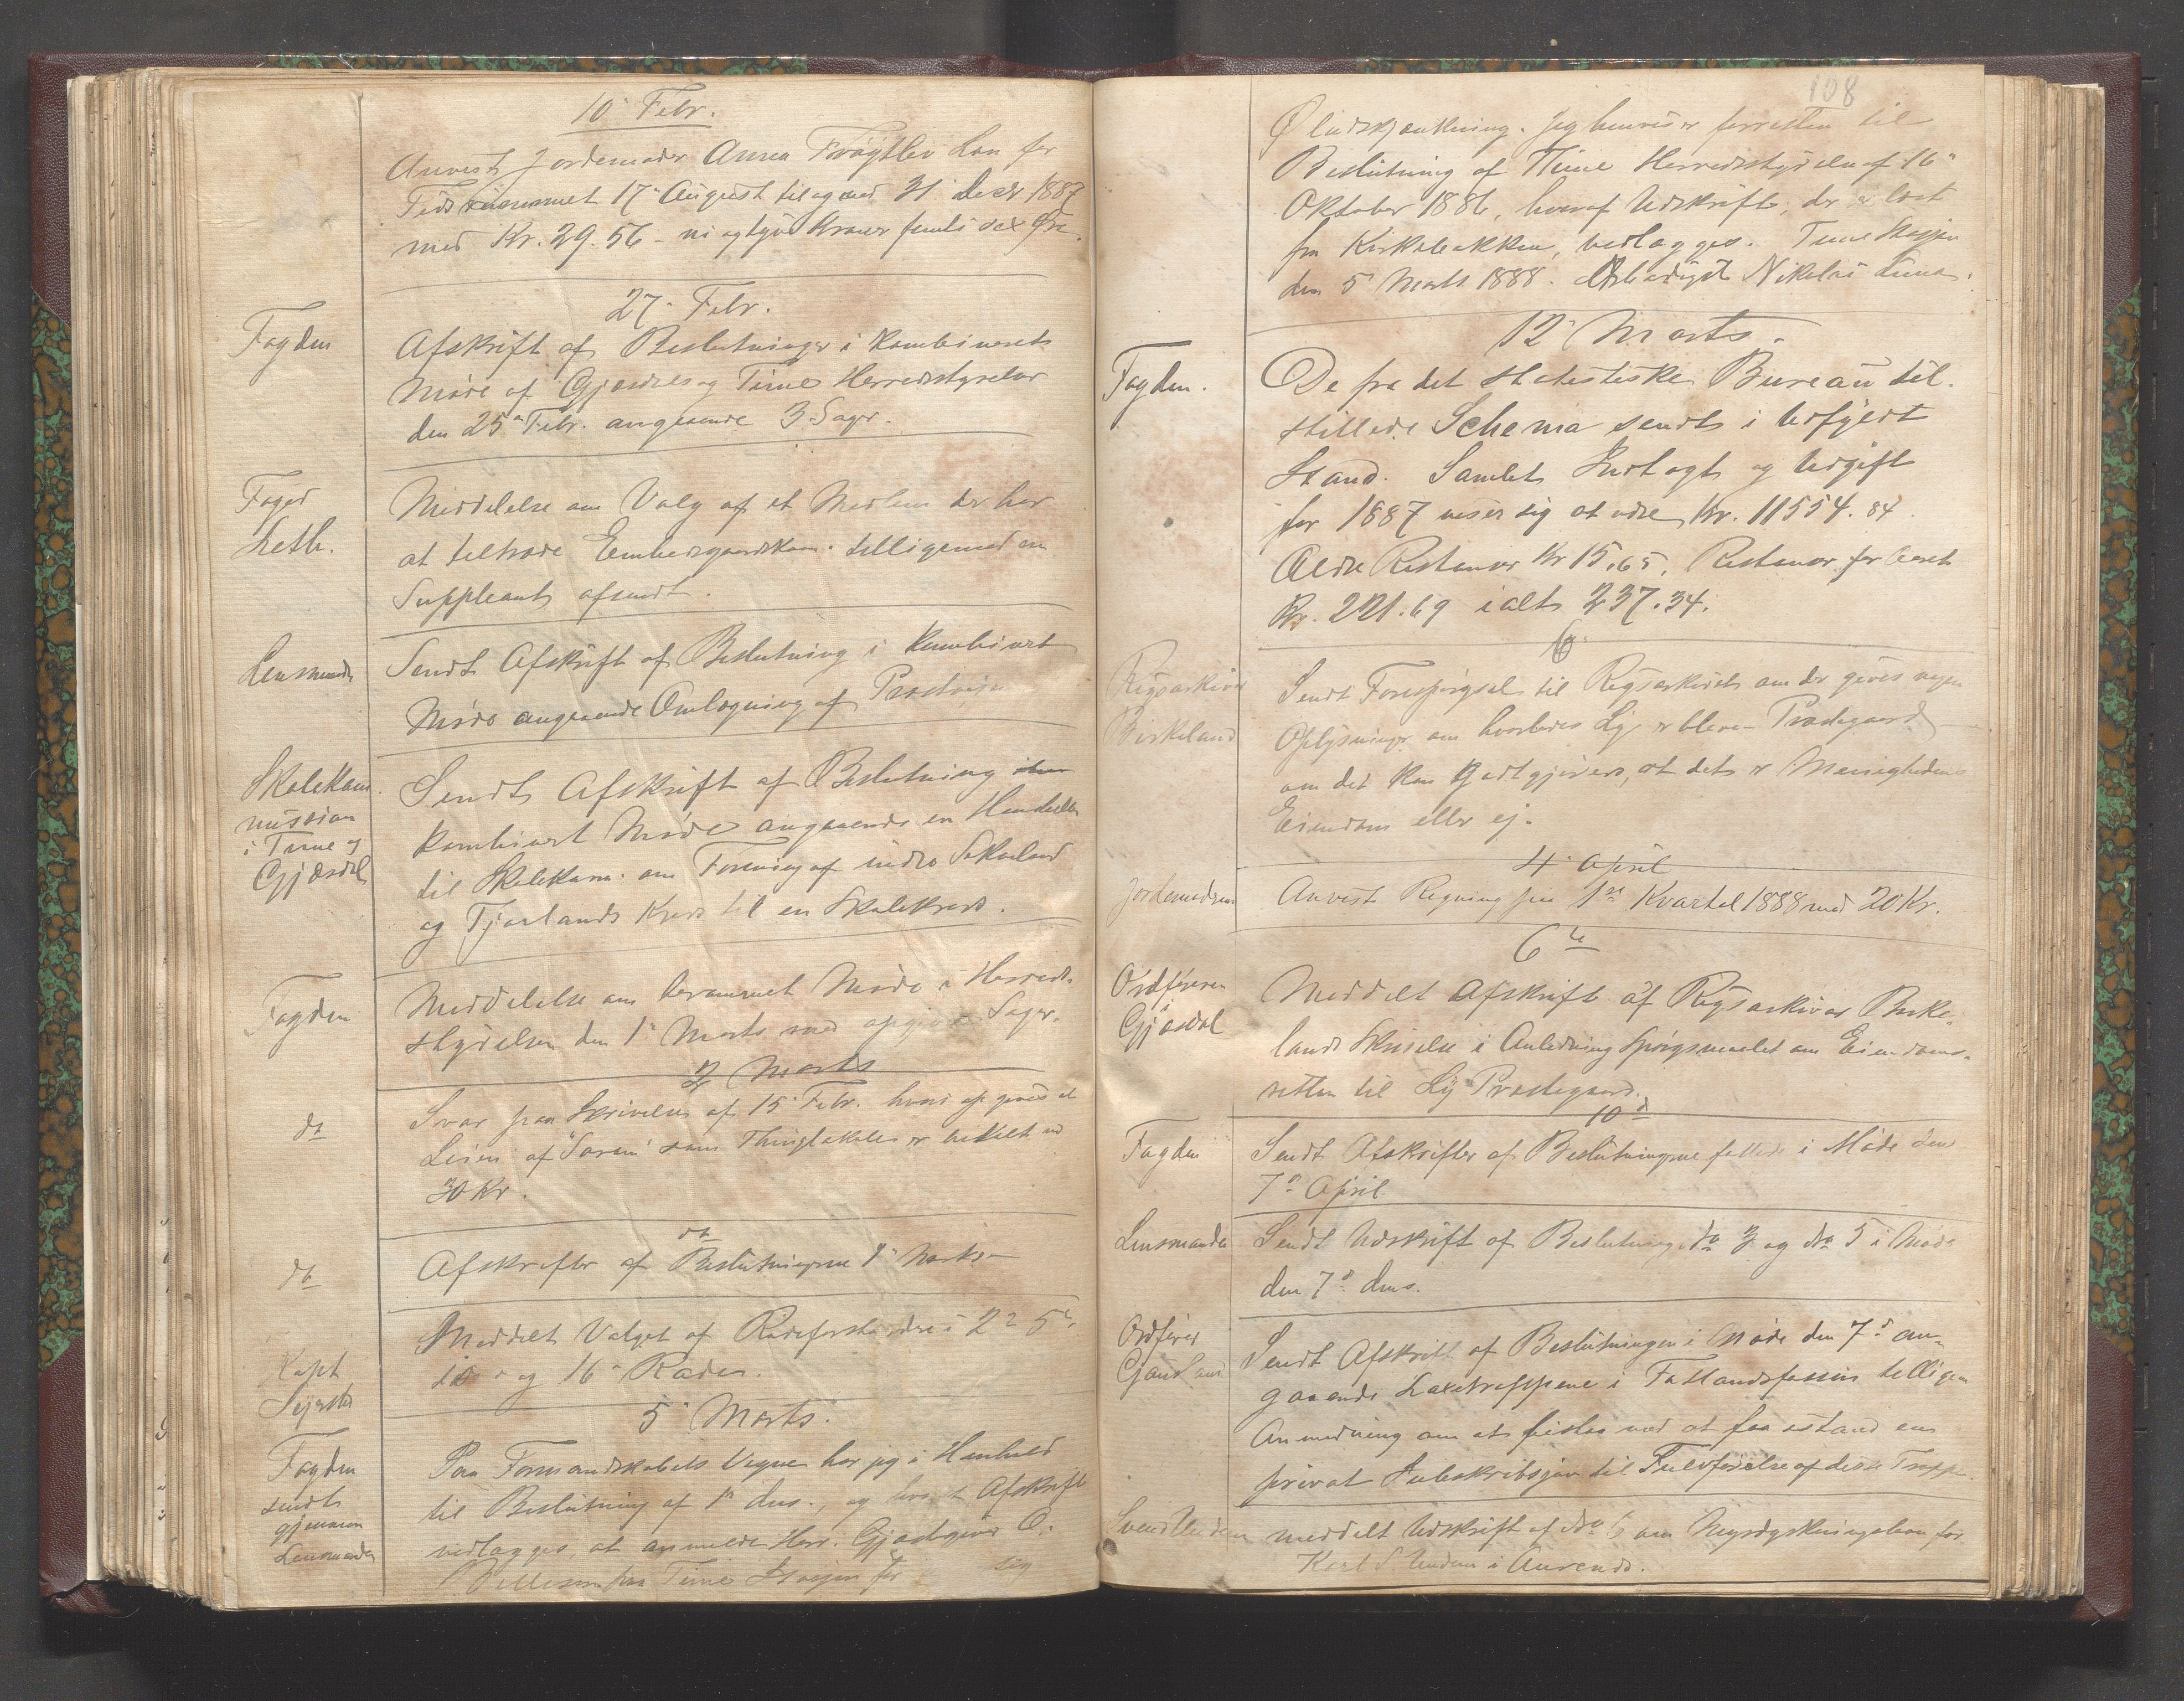 10' Febr.
Anvist Jordemoder Anna Frøytlev Løn for
Tidsrummet 17' August til og med 31' Decbr 1887
med Kr. 29.56 - ni og tyve Kroner femti sex Øre.
27' Febr.
Fogden
Afskrift af Beslutninger i kombineret
Møde af Gjæsdal og Time Herredsstyrelser
den 25' Febr. angaaende 3 Sager.
Foged
Leth.
Meddelelse om Valg af et Medlem der har
at tiltræde Embedsgaardskom. tilligemed en
Suppleant afsendt.
Lensmanden
Sendt Afskrift af Beslutning i kombinert
Møde angaaende Omlægning af
Skolekom-
mission
i Time og
Gjæsdal
Sendt Afskrift af Beslutning i
kombinert Møde angaaende en Henstillen
til Skolekom. om Forening af indre
og Fjørlands Kreds til en Skolekreds.
Fogden
Meddelelse om berammet Møde i Herreds-
styrelsen den 1' Marts med opgivne Sager.
2 Marts
do
Svar paa Skrivelse af 15' Febr. hvori opgives at
Leien af som Thinglokale er bitalt med
30 Kr.
do
do
Afskrifter af Beslutningerne 1' Marts
Kapt
Meddelt Valget af Rodeforstandere i 2' 5'
10' og 16' Roder.
5' Marts.
Fogden
sendt
gjennem
Lensmanden
Paa Formandskabets Vegne har jeg i Henhold
til Beslutning af 1' dns., og hvoraf Afskrift
vedlægges, at anmelde Herr. Gjæstgiver O.
fra Time Stasjon for sig
108
Øludskjænkning. Jeg henviser forresten til
Beslutning af Time Herredsstyrelse af 16'
Oktober 1886, hvoraf Udskrift, der er læst
fra Kirkebakken, vedlægges. Time Stasjon
den 5' Marts 1888. Ærbødigst Nikolai Lima.
12' Marts.
Fogden.
De fra det statistiske Bureau til-
stillede Schema sendt i udfyldt
Stand. Samlet Indtægt og Udgift
for 1887 viser sig at være Kr. 11554.84
Ældre Restancer Kr 15.65, Restancer for Aaret
Kr. 221.69 ialt 237.34.
6
Rigsarkivar
Birkeland
Sendt Forespørgsel til Rigsarkivet om der gives nogen
Oplysninger om hvorledes Lye er bleven Prestegaard
om det kan godtgjøres, at det er Menighedens
Eiendom eller ej.
4' April
Jordemoderen
Anvist Regning for 1ste Kvartal 1888 med 20 Kr.
6te
Ordføreren
i
Gjæsdal
Meddelt Afskrift af Rigsarkivar Birke-
lands Skrivelse i Anledning Spørgsmaalet om Eiendoms-
retten til Lye Prestegaard.
10d
Fogden
Sendt Afskrifter af Beslutningerne fattede i Møde den
7de April
Lensmanden
Sendt Udskrift af Beslutning No 3 og No 5 i Møde
den 7de dns.
Ordfører
Sendt Afskrift af Beslutningen i Møde den 7de an-
gaaende Laxetrappene i Fotlandsfossen tilligem
Anmodning om at bistaa med at faa istand en
privat Subskribsjon til Fuldførelse af disse Trappe
Svend Undem
meddelt Udskrift af No 6 om Nyrydskningslaan for
Karl S Undem i Aurenes.